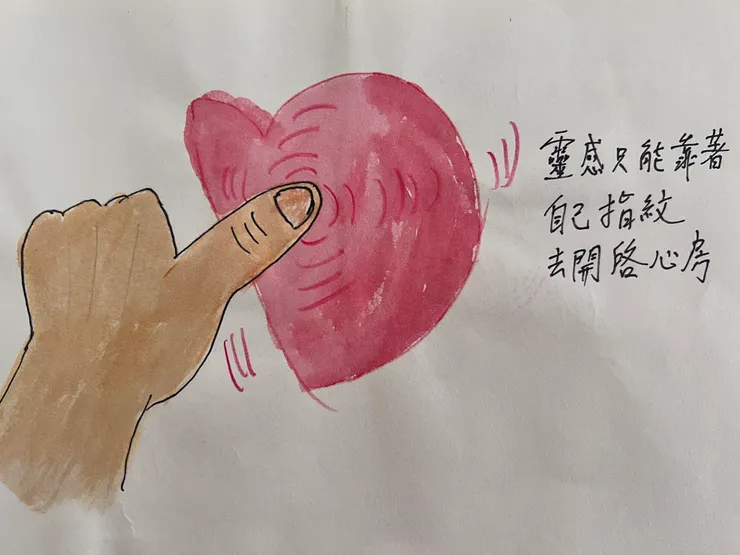 靈感只能靠著
自己指紋
去開啓心房